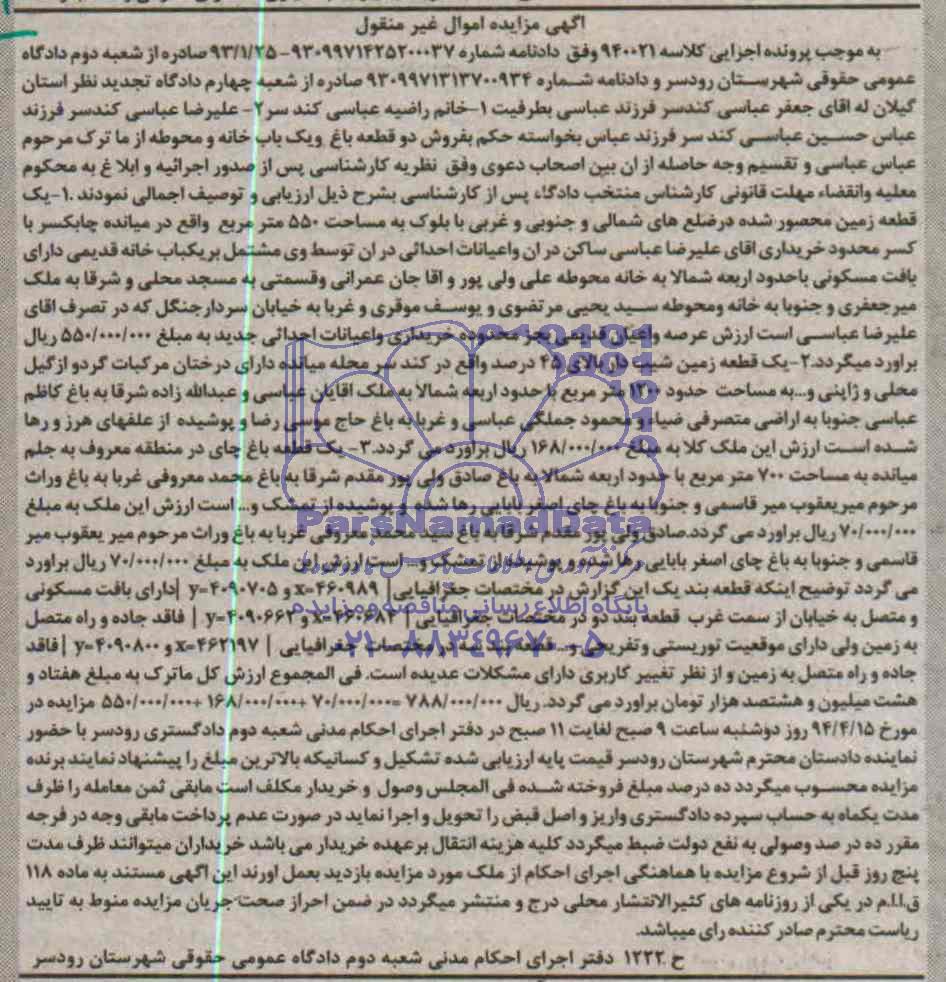 آگهی مزایده اموال غیر منقول
به موجب پرونده اجرایی کلاسه ۹۴۰۰۲۱ وفق دادنامه شماره ۹۳۰۹۹۷۱۴۲۵۲۰۰۰۳۷- ۹۳/۱/۲۵ صادره از شعبه دوم دادگاه
عمومی حقوقی شهرستان رودسر و دادنامه شماره ۹۳۰۹۹۷۱۳۱۳۷۰۰۹۳۴ صادره از شعبه چهارم دادگاه تجدید نظر استان
گیلان له اقای جعفر عباسی کندسر فرزند عباسی بطرفیت ۱-خانم راضیه عباسی کند سر ۲- علیرضا عباسی کندسر فرزند
عباس حسین عباسی کند سر فرزند عباس بخواسته حکم بفروش دو قطعه باغ ویک باب خانه و محوطه از ما ترک مرحوم
عباس عباسی و تقسیم وجه حاصله از ان بین اصحاب دعوی وفق نظریه کارشناسی پس از صدور اجرائیه و ابلا غ به محکوم
معلیه وانقضاء مهلت قانونی کارشناس منتخب دادگاه پس از کارشناسی بشرح ذیل ارزیابی و توصیف اجمالی نمودند .۱-یک
قطعه زمین محصور شده درضلع های شمالی و جنوبی و غربی با بلوک به مساحت ۵۵۰ متر مربع واقع در میانده چابکسر با
کسر محدود خریداری اقای علیرضا عباسی ساکن در ان واعیانات احداثی در ان توسط وی مشتمل بریکباب خانه قدیمی دارای
بافت مسکونی باحدود اربعه شمالا به خانه محوطه علی ولی پور و اقا جان عمرانی وقسمتی به مسجد محلی و شرقا به ملک
میرجعفری و جنوبا به خانه ومحوطه سید یحیی مرتضوی و یوسف موقری و غربا به خیابان سردارجنگل که در تصرف اقای
علیرضا عباسی است ارزش عرصه واعیان قدیمی بجز محدوده خریداری واعیانات احداثی جدید به مبلغ ۵۵۰/۰۰۰/۰۰۰ ریال
براورد میگردد.۲-یک قطعه زمین شیب دار بالای ۴۵ درصد واقع در کند سر محله میانده دارای درختان مرکبات گردو ازگیل
محلی و ژاپنی و...به مساحت حدود ۱۲۰۰ متر مربع با حدود اربعه شمالا به ملک اقایان عباسی و عبدالله زاده شرقا به باغ کاظم
عباسی جنوبا به اراضی متصرفی ضیاء و محمود جملگی عباسی و غربا به باغ حاج موسی رضا و پوشیده از علفهای هرز و رها
شده است ارزش این ملک کلا به مبلغ ۱۶۸/۰۰۰/۰۰۰ ریال براورد می گردد.۳- یک قطعه باغ چای در منطقه معروف به جلم
میانده به مساحت ۷۰۰ متر مربع با حدود اربعه شمالا به باغ صادق ولی پور مقدم شرقا به باغ محمد معروفی غربا به باغ وراث
مرحوم میریعقوب میر قاسمی و جنوبا به باغ چای اصغر بابایی رها شده و پوشیده از تمشک و... است ارزش این ملک به مبلغ
۷۰/۰۰۰/۰۰۰ ریال براورد می گردد.صادق ولی پور مقدم شرقا به باغ سید محمد معروفی غربا به باغ وراث مرحوم میر یعقوب میر
قاسمی و جنوبا به باغ چای اصغر بابایی رها شده و پوشیده از تمشک و... است ارزش این ملک به مبلغ ۷۰/۰۰۰/۰۰۰ ریال براورد
می گردد توضیح اینکه قطعه بند یک این گزارش در مختصات جغرافیایی| x=۴۶۰۹۸۹ و y=۴۰۹۰۷۰۵ |دارای بافت مسکونی
و متصل به خیابان از سمت غرب قطعه بند دو در مختصات جغرافیایی | x=۴۶۰۶۸۴ و y=۴۰۹۰۶۶۳ | فاقد جاده و راه متصل
به زمین ولی دارای موقعیت توریستی وتفریحی و... قطعه بند سه در مختصات جغرافیایی | x=۴۶۲۱۹۷ و y=۴۰۹۰۸۰۰ |فاقد
جاده و راه متصل به زمین و از نظر تغییر کاربری دارای مشکلات عدیده است. فی المجموع ارزش کل ماترک به مبلغ هفتاد و
هشت میلیون و هشتصد هزار تومان براورد می گردد. ریال ۷۸۸/۰۰۰/۰۰۰= ۷۰/۰۰۰/۰۰۰+ ۱۶۸/۰۰۰/۰۰۰+ ۵۵۰/۰۰۰/۰۰۰ مزایده در
مورخ ۹۴/۴/۱۵ روز دوشنبه ساعت ۹ صبح لغایت ۱۱ صبح در دفتر اجرای احکام مدنی شعبه دوم دادگستری رودسر با حضور
نماینده دادستان محترم شهرستان رودسر قیمت پایه ارزیابی شده تشکیل و کسانیکه بالاترین مبلغ را پیشنهاد نمایند برنده
مزایده محسوب میگردد ده درصد مبلغ فروخته شده فی المجلس وصول و خریدار مکلف است مابقی ثمن معامله را ظرف
مدت یکماه به حساب سپرده دادگستری واریز و اصل قبض را تحویل و اجرا نماید در صورت عدم پرداخت مابقی وجه در فرجه
مقرر ده در صد وصولی به نفع دولت ضبط میگردد کلیه هزینه انتقال برعهده خریدار می باشد خریداران میتوانند ظرف مدت
پنج روز قبل از شروع مزایده با هماهنگی اجرای احکام از ملک مورد مزایده بازدید بعمل اورند این اگهی مستند به ماده ۱۱۸
ق.ا.ا.م در یکی از روزنامه های کثیرالانتشار محلی درج و منتشر میگردد در ضمن احراز صحت جریان مزایده منوط به تایید
ریاست محترم صادر کننده رای میباشد.
ح ۱۲۲۲ دفتر اجرای احکام مدنی شعبه دوم دادگاه عمومی حقوقی شهرستان رودسر
ParsNamadData
پایگاه اطلاع رسانی مناقصه و مزایده
۰۲۱-۸۸۳۴۹۶۷۰-۵